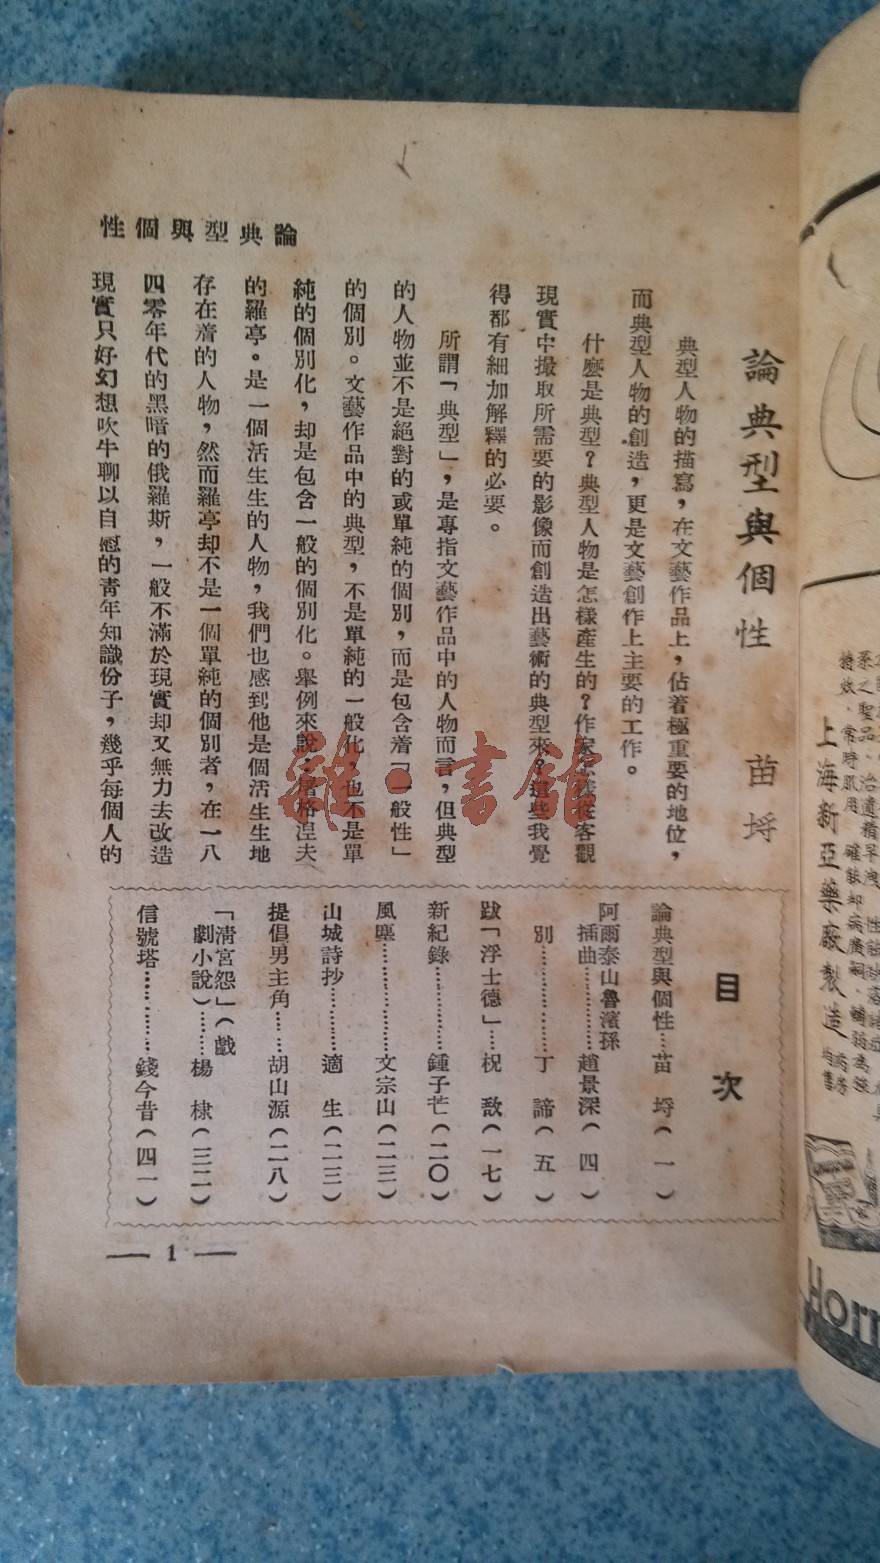 論典型與個性
苗埒
典型人物的描寫，在文藝作品上，佔着極重要的地位，
而典型人物的創造，更是文藝創作上主要的工作。
什麼是典型？典型人物是怎樣產生的？作家怎樣從客觀
現實中撮取所需要的影像而創造出藝術的典型來？這些我覺
得都有細加解釋的必要。
所謂「典型」，是專指文藝作品中的人物而言，但典型
的人物並不是絕對的或單純的個別，而是包含着「一般性」
的個別。文藝作品中的典型，不是單純的一般化，也不是單
純的個別化，却是包含一般的個別化。舉例來說：屠格涅夫
的羅亭。是一個活生生的人物，我們也感到他是個活生生地
存在着的人物，然而羅亭却不是一個單純的個別者，在一八
四零年代的黑暗的俄羅斯，一般不滿於現實却又無力去改造
現實只好幻想吹牛聊以自慰的青年知識份子，幾乎每個人的
論典型與個性
目次
論典型與個性…苗埒（一）
阿爾泰山魯濱孫
插曲……………趙景深（四）
別…………………丁諦（五）
跋「浮士德」……祝敔（一七）
新紀錄……………鍾子芒（二〇）
風塵………………文宗山（二三）
山城詩抄…………適生（二三）
提倡男主角………胡山源（二八）
「清宮怨」（戲
劇小說）………楊棣（三二）
信號塔……………錢今昔（四一）
— 1 —
雜·書館
上海新亞藥廠製造
Horm